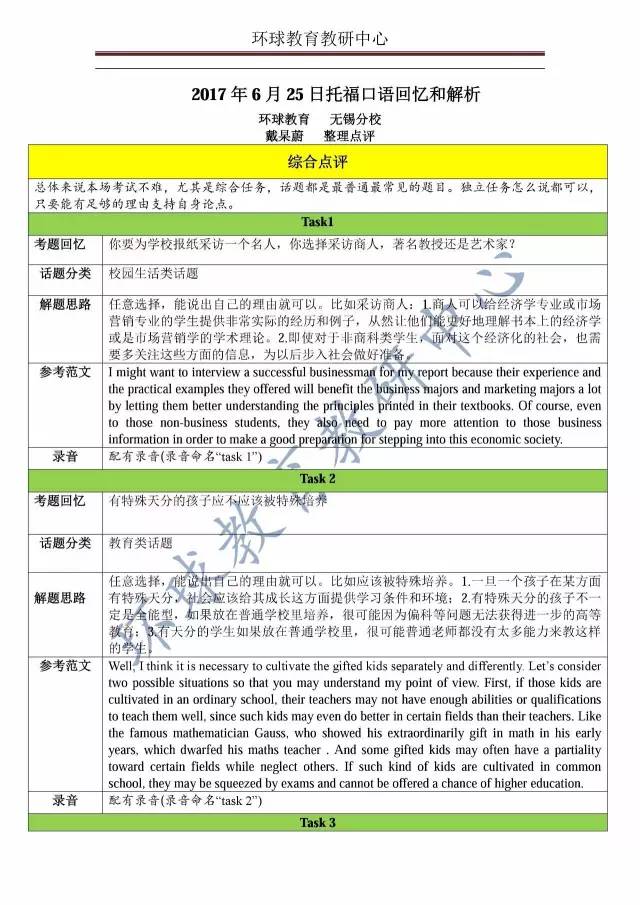 环球教育教研中心
2017 年 6 月 25 日托福口语回忆和解析
环球教育 无锡分校
戴杲蔚 整理点评
综合点评
总体来说本场考试不难，尤其是综合任务，话题都是最普通最常见的题目。独立任务怎么说都可以，
只要能有足够的理由支持自身论点。
Task1
考题回忆 你要为学校报纸采访一个名人，你选择采访商人，著名教授还是艺术家？
话题分类 校园生活类话题
解题思路 任意选择，能说出自己的理由就可以。比如采访商人：1.商人可以给经济学专业或市场
营销专业的学生提供非常实际的经历和例子，从然让他们能更好地理解书本上的经济学
或是市场营销学的学术理论。2.即使对于非商科类学生，面对这个经济化的社会，也需
要多关注这些方面的信息，为以后步入社会做好准备。
参考范文 I might want to interview a successful businessman for my report because their experience and
the practical examples they offered will benefit the business majors and marketing majors a lot
by letting them better understanding the principles printed in their textbooks. Of course, even
to those non-business students, they also need to pay more attention to those business
information in order to make a good preparation for stepping into this economic society.
录音 配有录音(录音命名“task 1”)
Task 2
考题回忆 有特殊天分的孩子应不应该被特殊培养
话题分类 教育类话题
解题思路 任意选择，能说出自己的理由就可以。比如应该被特殊培养。1.一旦一个孩子在某方面
有特殊天分，社会应该给其成长这方面提供学习条件和环境；2.有特殊天分的孩子不一
定是全能型，如果放在普通学校里培养，很可能因为偏科等问题无法获得进一步的高等
教育；3.有天分的学生如果放在普通学校里，很可能普通老师都没有太多能力来教这样
的学生。
参考范文 Well, I think it is necessary to cultivate the gifted kids separately and differently. Let's consider
two possible situations so that you may understand my point of view. First, if those kids are
cultivated in an ordinary school, their teachers may not have enough abilities or qualifications
to teach them well, since such kids may even do better in certain fields than their teachers. Like
the famous mathematician Gauss, who showed his extraordinarily gift in math in his early
years, which dwarfed his maths teacher . And some gifted kids may often have a partiality
toward certain fields while neglect others. If such kind of kids are cultivated in common
school, they may be squeezed by exams and cannot be offered a chance of higher education.
录音 配有录音(录音命名“task 2”)
Task 3
环球教育教研中心